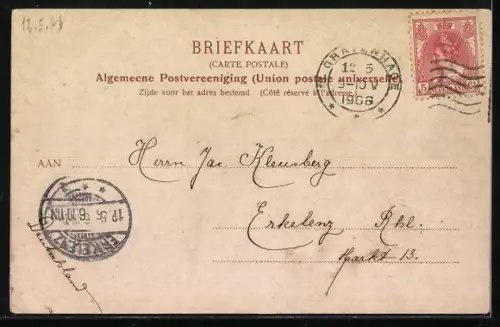 12.5.06
BRIEFKAART
(CARTE POSTALE)
Algemeene Postvereeniging (Union postale universelle)
Zijde voor het adres bestemd. (Côté réservé à l'adresse.)
'S GRAVENHAGE
12 5
9-10 V
1906
5
AAN
Herrn Jac Kleusberg
Erkelenz Rhl.
Markt 13.
ERKELENZ
Deutschland